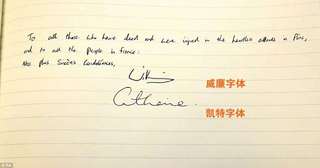 To all those who have died and were injured in the heartless attacks in Paris,
and to all the people in France.
Nos plus Sincères Condoléances,
威廉字体
Catherine.
凯特字体